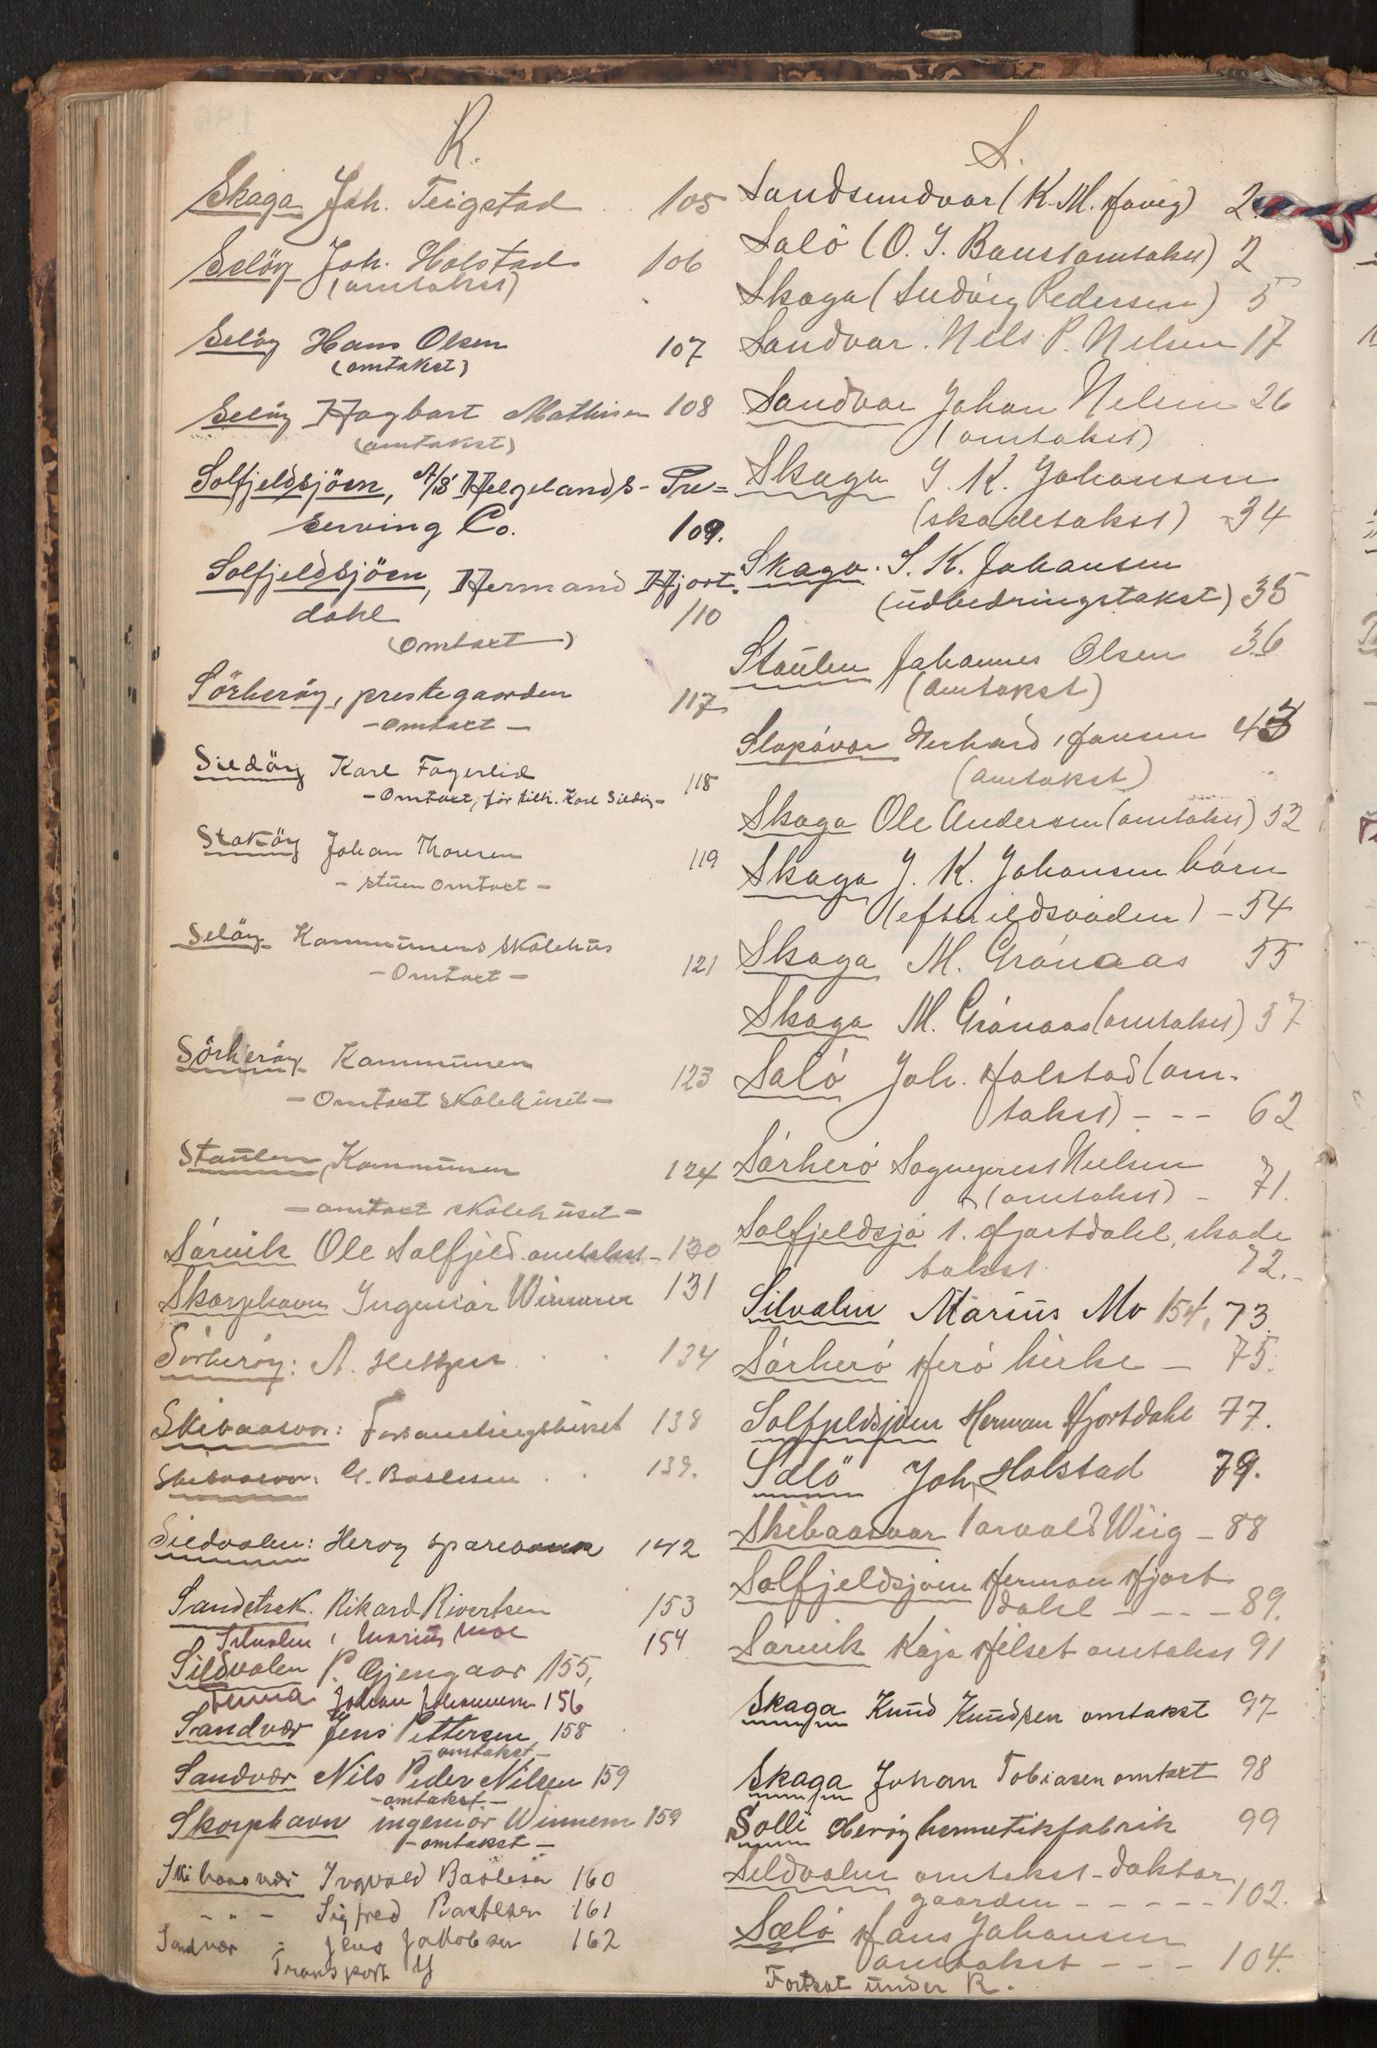 R.
Skaga Joh. Teigstad 105
Selöy Joh. Holstad 106
(omtakst)
Selöy Hans Olsen 107
(omtakst)
Selöy Hagbart Mathisen 108
(omtakst)
Solfjeldsjöen, A/S Helgelands- Pre=
serving Co. 109.
Solfjeldsjöen, Hermand Hjort-
dahl 110
(omtaxt)
Sörheröy, prestegaarden 117
- omtaxt -
Sildöy Karl Fagerlid 118
- Omtaxt, før tilh. Karl Sildöy -
Stoköy Johan Thoresen 119
- stuen omtaxt -
Selöy Kommunens Skolehus 121
- Omtaxt -
Sörheröy Kommunen 123
- Omtaxt skolehuset -
Staulen, Kommunen 124
- omtaxt skolehuset -
Sörvik Ole Solfjeld omtakst - 130
Skorphavn Ingeniör Winnem 131
Sörheröy: A. 134
Skibaasvær: Forsamlingshuset 138
Skibaasvær: Baslesen 139.
Sildvalen: Herøy sparebank 142
Sandstrak. Rikard Rivertsen 153
Silvalen, Marius Moe 154
Sildvalen P. Gjengaar 155,
Tenna Johan Johannesen 156
Sandvær Jens Pettersen 158
- omtakst -
Sandvær Nils Peder Nilsen 159
- omtakst -
Skorphavn ingeniör Winnem 159
- omtakst -
Skibaasvær Ingvald Baslesen 160
- " - Sigfred Baslesen 161
Sandvær - Jens Jakobsen 162
Transport Y
S.
Sandsundvær (K. M. Høvig) 2.
Salö (O. J. Baustad omtakst) 2
Skaga (Ludvig Pedersen) 5
Sandvær. Nils P. Nilsen 17
Sandvær Johan Nilsen 26
(omtakst)
Skaga J. K. Johansen
(skadetakst) - 34
Skaga. J. K. Johansen
(udbedringstakst) 35
Staulen Johannes Olsen 36
(omtakst)
Slapövær Gerhard Hansen 43
(omtakst)
Skaga Ole Andersen (omtakst) 52
Skaga J. K. Johansen börn
(efter ildsvaaden) - 54
Skaga M. Grönaas 55
Skaga M. Grönaas (omtakst) 57
Salö Joh. Holstad (om-
takst) - - - 62
Sörherö Sogneprest Nielsen
(omtakst) - 71.
Solfjeldsjö H. Hjortdahl, skade
takst 72. -
Silvalen Marius Mo 154, 73.
Sörherö Herö kirke - 75.
Solfjeldsjöen Herman Hjortdahl 77.
Sælö Joh. Holstad 79.
Skibaasvær Torvald Wiig - 88
Solfjeldsjöen Herman Hjort
dahl - - - - 89.
Sörvik Kaja Hilset omtakst 91
Skaga Knud Knudsen omtakst 97
Skaga Johan Tobiasen omtaxt 98
Solli Herøy hermetikfabrik 99
Sildvalen omtakst - doktor
gaarden - - - - - 102.
Sælö Hans Johansen
omtakst - - - 104.
Fortsat under R.